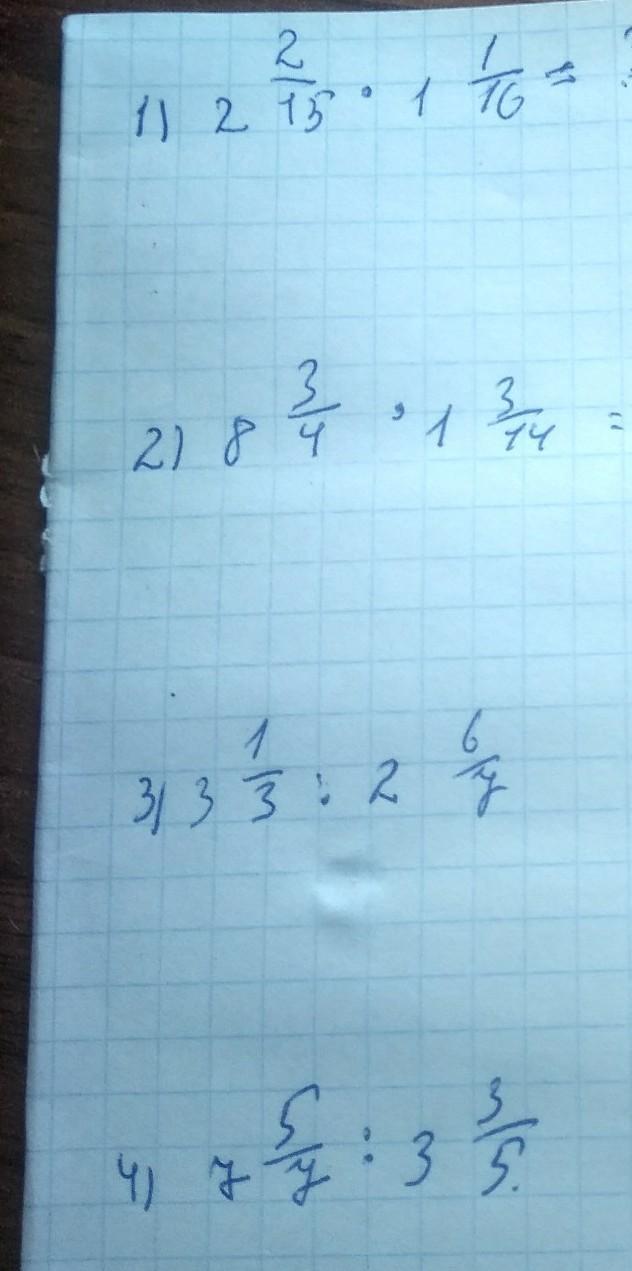 1) 2 2/15 · 1 1/16 =
2) 8 3/4 · 1 3/14 =
3) 3 1/3 : 2 6/7
4) 7 5/7 : 3 3/5